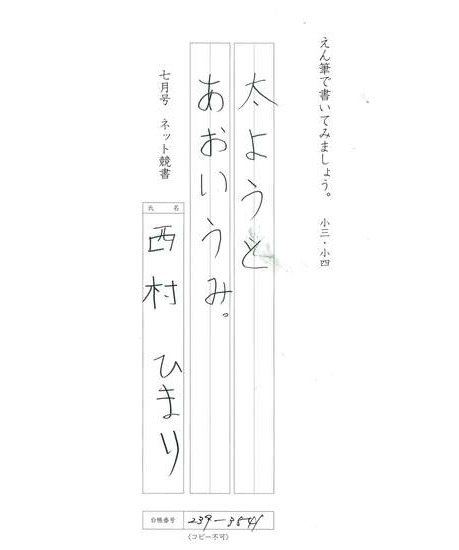 えん筆で書いてみましょう。 小三・小四
太ようと
あおいうみ。
七月号 ネット競書
氏名
西村 ひまり
台帳番号 239-3841
〈コピー不可〉